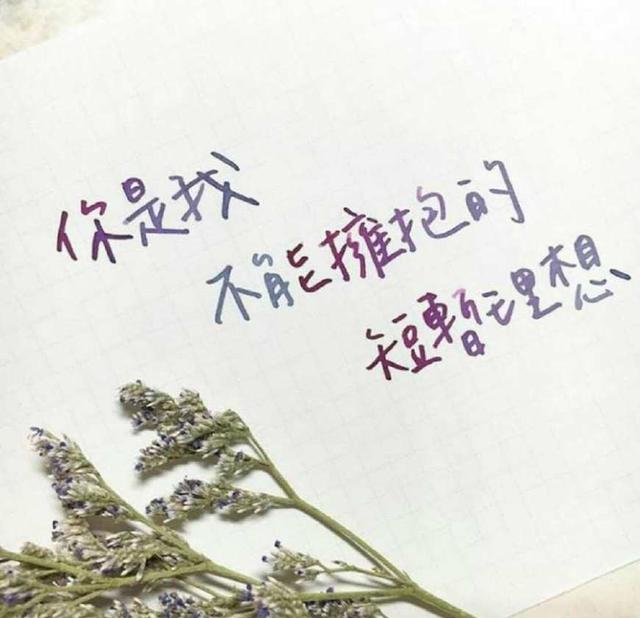 你是我
不能擁抱的
短暫理想